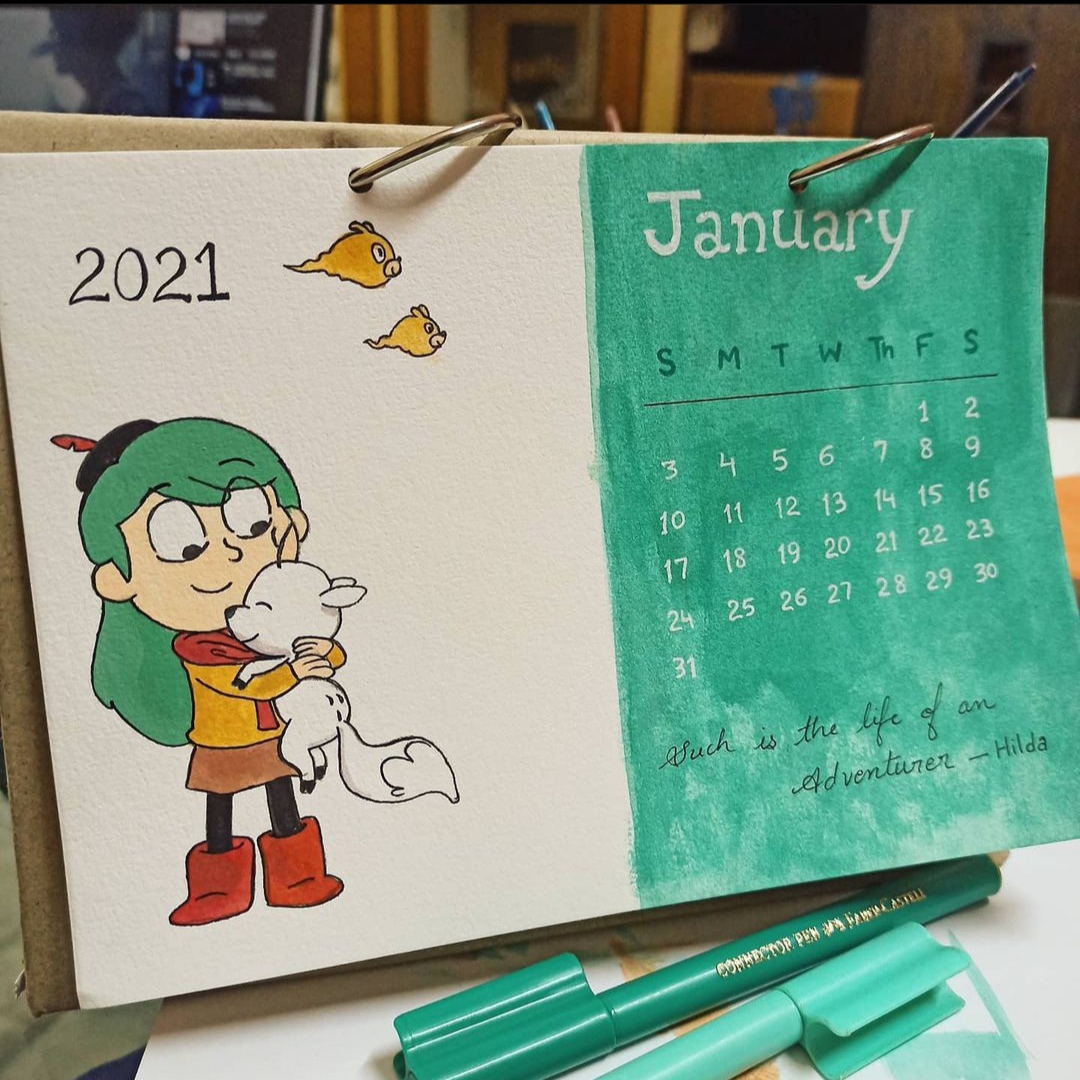 2021
January
S M T W Th F S
1 2
3 4 5 6 7 8 9
10 11 12 13 14 15 16
17 18 19 20 21 22 23
24 25 26 27 28 29 30
31
Such is the life of an
Adventurer – Hilda
CONNECTOR PEN FABER-CASTELL